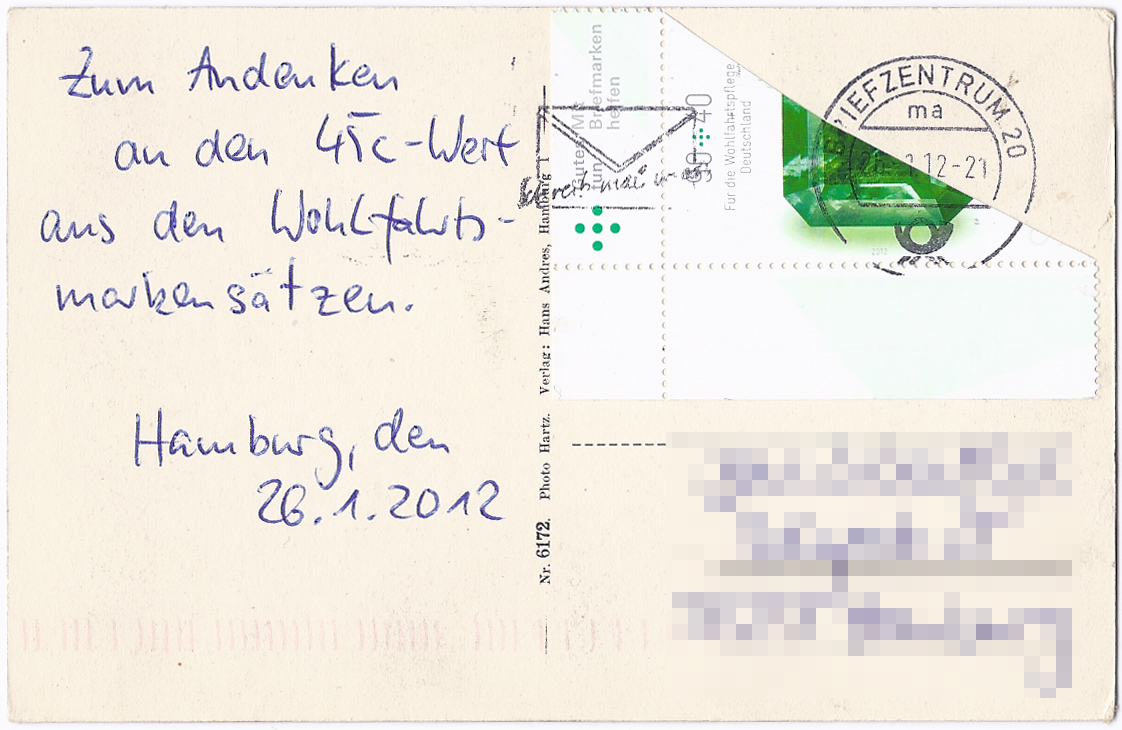 Zum Andenken
an den 45c-Wert
aus den Wohlfahrts-
markensätzen.
Hamburg, den
26.1.2012
Nr. 6172. Photo Hartz. Verlag: Hans Andres, Hamburg 1
Gutes
tun
Mit
Briefmarken
helfen
90+40
Für die Wohlfahrtspflege
Deutschland
2012
IEFZENTRUM 20
ma
12-21